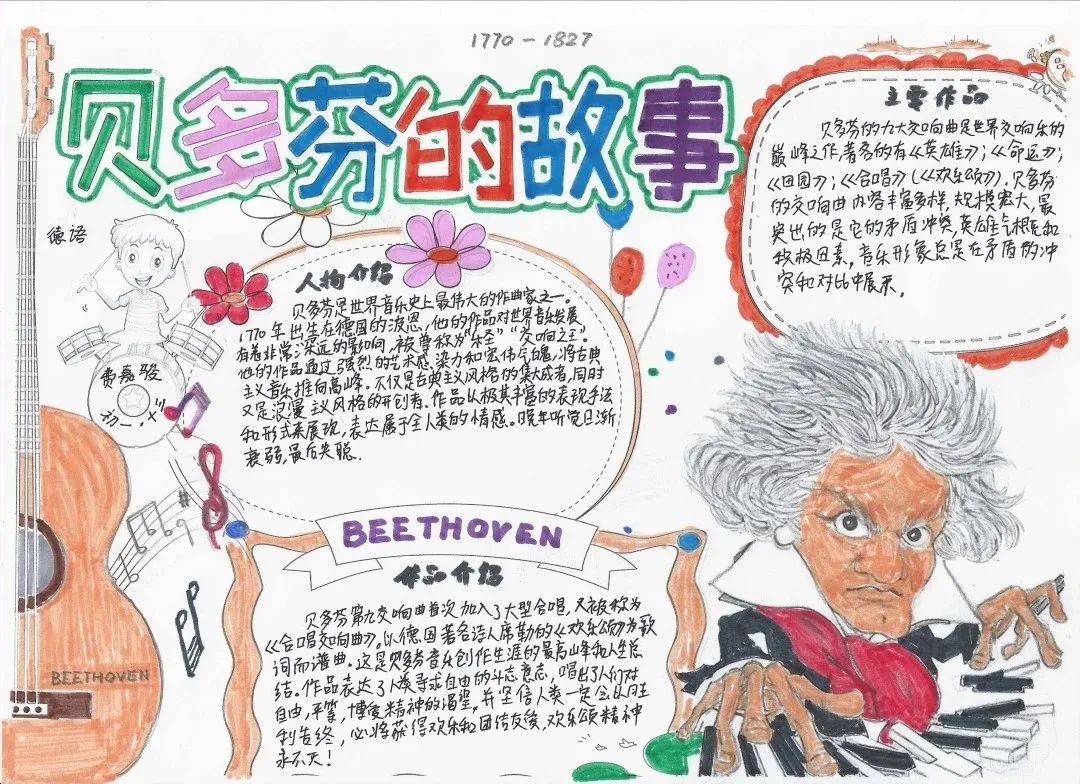 1770-1827
贝多芬的故事
德语
费嘉骏
初一.
人物介绍
贝多芬是世界音乐史上最伟大的作曲家之一。
1770年出生在德国的波恩,他的作品对世界音乐发展
有着非常深远的影响,被尊称为“乐圣”“交响之王”。
他的作品通过强烈的艺术感染力和宏伟气魄,将古典
主义音乐推向高峰。不仅是古典主义风格的集大成者,同时
又是浪漫主义风格的开创者。作品以极其丰富的表现手法
和形式来展现,表达属于全人类的情感。晚年听觉日渐
衰弱,最后失聪.
主要作品
贝多芬的九大交响曲是世界交响乐的
巅峰之作,著名的有《英雄》;《命运》;
《田园》;《合唱》(《欢乐颂》).贝多芬
的交响曲内容丰富多样,规模宏大,最
突出的是它的矛盾冲突,英雄气概和
积极因素,音乐形象总是在矛盾的冲
突和对比中展示.
BEETHOVEN
作品介绍
贝多芬第九交响曲首次加入了大型合唱,又被称为
《合唱交响曲》.以德国著名诗人席勒的《欢乐颂》为歌
词而谱曲.这是贝多芬音乐创作生涯的最高峰和人生总
结.作品表达了人类寻求自由的斗志意志,唱出了人们对
自由,平等,博爱精神的渴望,并坚信人类一定会以胜
利告终,必将获得欢乐和团结友爱,欢乐颂精神
永不灭!
BEETHOVEN